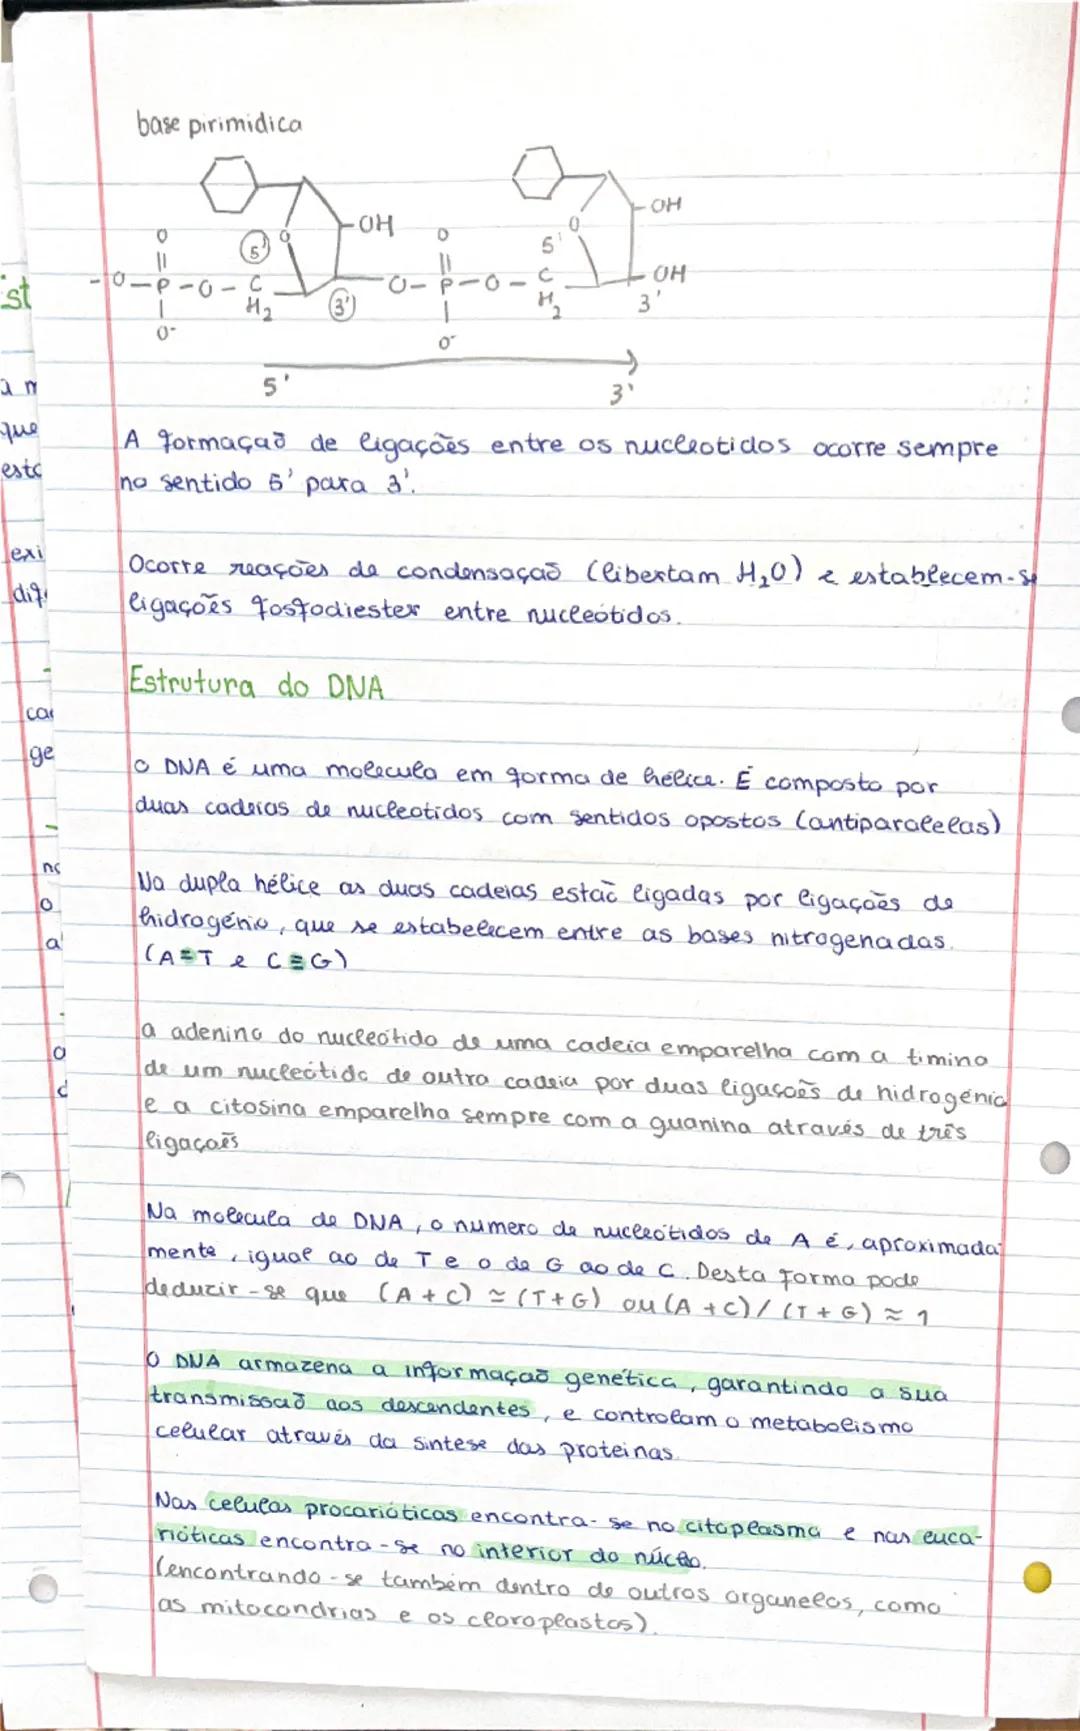 base pirimidica
OH
OH
O
O
5'
O
5'
O
-O-P-O-C
O-P-O-C
OH
H2
3'
H2
3'
O-
O-
5'
3'
A formação de ligações entre os nucleotidos ocorre sempre
no sentido 5' para 3'.
Ocorre reações de condensação (libertam H2O) e establecem-se
ligações fosfodiester entre nucleótidos.
Estrutura do DNA
O DNA é uma molecula em forma de hélice. É composto por
duas cadeias de nucleotidos com sentidos opostos (antiparalelas)
Na dupla hélice as duas cadeias estão ligadas por ligações de
hidrogénio, que se estabelecem entre as bases nitrogenadas.
(A=T e C≡G)
a adenina do nucleótido de uma cadeia emparelha com a timina
de um nucleótido de outra cadeia por duas ligações de hidrogénio
e a citosina emparelha sempre com a guanina através de três
ligações
Na molecula de DNA, o numero de nucleótidos de A é, aproximada-
mente, igual ao de T e o de G ao de C. Desta forma pode
deduzir-se que (A+C) ≃ (T+G) ou (A+C)/(T+G) ≈ 1
O DNA armazena a informação genética, garantindo a sua
transmissão aos descendentes, e controlam o metabolismo
celular através da sintese das proteinas.
Nas celulas procarióticas encontra-se no citoplasma e nas euca-
rióticas encontra-se no interior do núcleo.
(encontrando-se também dentro de outros organelos, como
as mitocondrias e os cloroplastos).
st
a m
que
esta
exi
dif
ca
ge
no
o
a
a
d